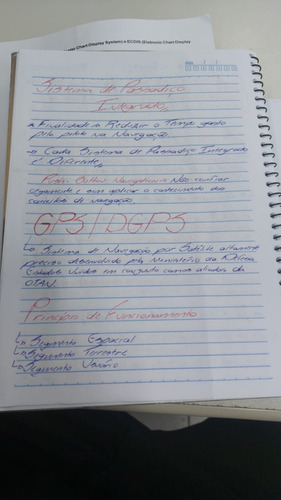 Chart Display System) e ECDIS (Eletronic Chart Display
Sistema de Passadiço
Integrado
Finalidade: Reduzir o Tempo gasto
pelo prático na Navegação.
Cada Sistema de Passadiço Integrado
é Diferente.
Não confiar
cegamente e sim aplicar o conhecimento dos
conceitos de navegação.
GPS/DGPS
Sistema de Navegação por Satélite altamente
preciso desenvolvido pelo Ministério da Defesa
Estados Unidos em conjunto com os aliados da
OTAN.
Princípios de Funcionamento
Segmento Espacial
Segmento Terrestre
Segmento Usuário